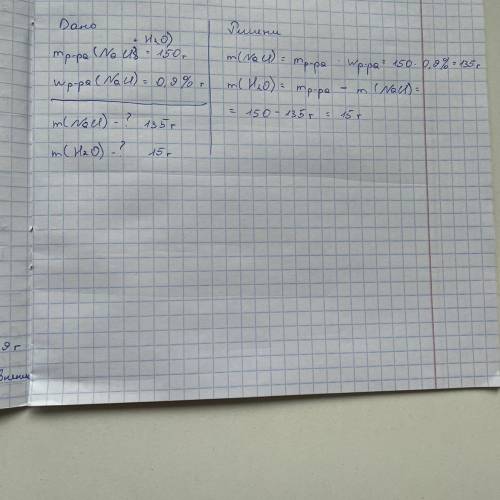 Дано
+ H₂O)
mр-ра (NaCl) = 150г
wр-ра (NaCl) = 0,9% г
m(NaCl) - ? 135г
m(H₂O) - ? 15г
Решени
m(NaCl) = mр-ра · wр-ра = 150 · 0,9% = 135г
m(H₂O) = mр-ра - m(NaCl) =
= 150 - 135г = 15г
9 г